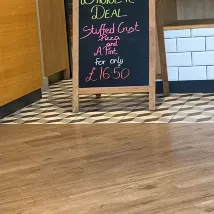 DEAL
Stuffed Crust
Pizza
and
A Pint
for only
£16.50